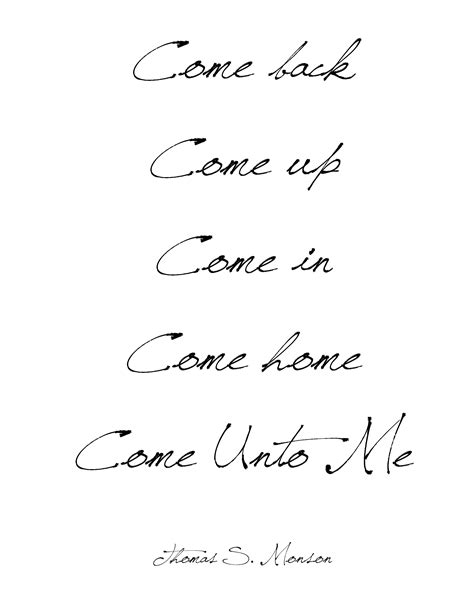 Come back
Come up
Come in
Come home
Come Unto Me
Thomas S. Monson